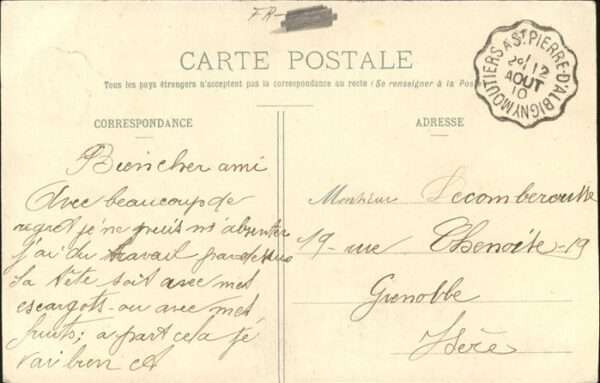 FR-
CARTE POSTALE
Tous les pays étrangers n'acceptent pas la correspondance au recto (Se renseigner à la Poste
MOUTIERS A ST PIERRE-D'ALBIGNY
12
AOUT
10
CORRESPONDANCE
ADRESSE
Bien cher ami
Avec beaucoup de
regret je ne puis m'absenter
j'ai du travail par dessus
la tête soit avec mes
escargots - ou avec mes
fruits; a part cela je
vai bien et
Monsieur Decomberousse
19 - rue Thenoite - 19
Grenoble
Isère